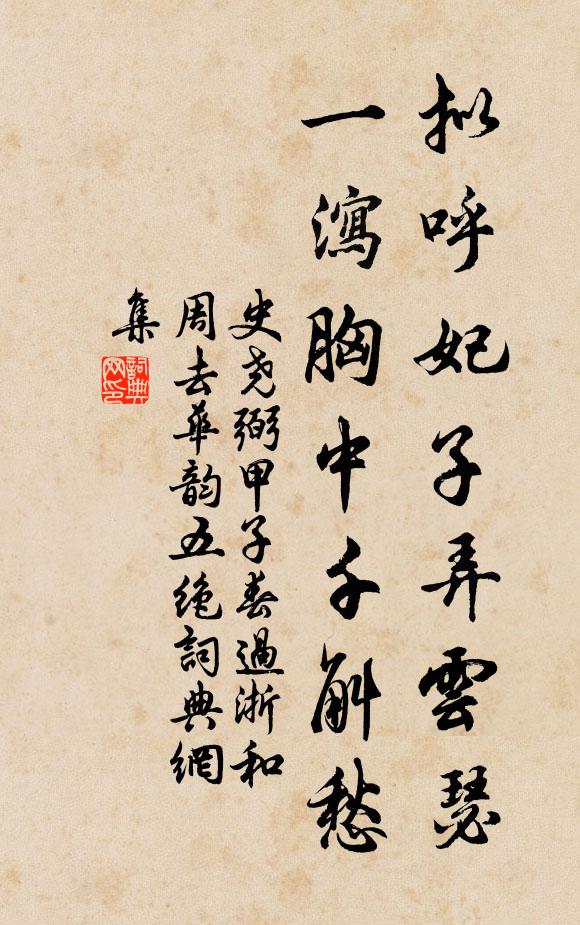 拟呼妃子弄雲瑟
一瀉胸中千斛愁
史尧弼甲子春過浙和
周去華韵五绝詞典網
集
詞典网印